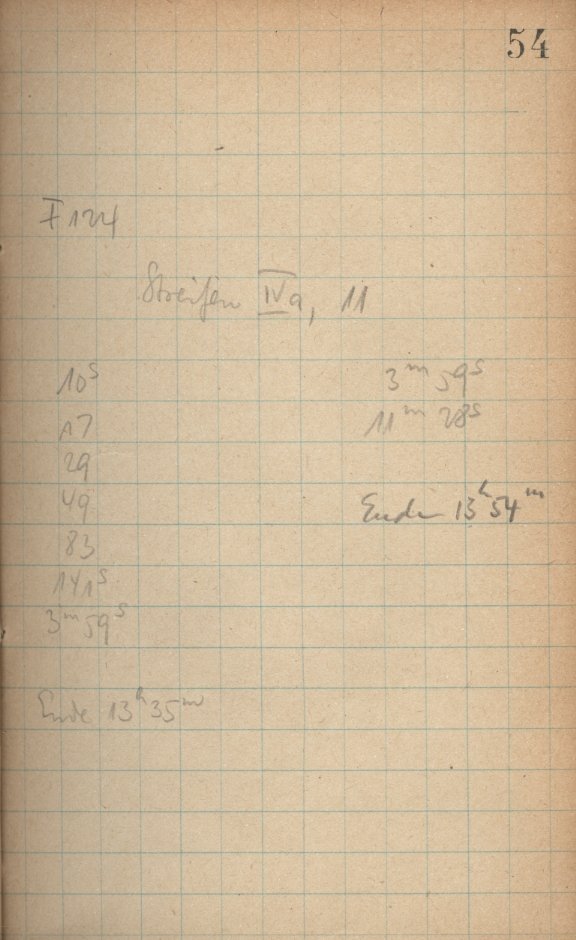 54
I 124
Streifen IVa, 11
10ˢ
17
29
49
83
141ˢ
3ᵐ 59ˢ
Ende 13ʰ 35ᵐ
3ᵐ 59ˢ
11ᵐ 28ˢ
Ende 13ʰ 54ᵐ